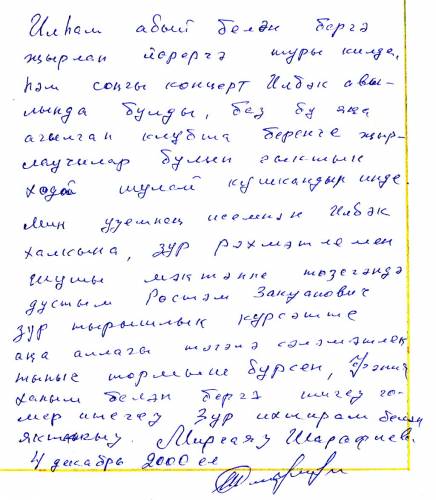 Илһам абый белән бергә
җырлап йөрергә туры килде,
һәм соңгы концерт Илбәк авы-
лында булды, без бу яңа
ачылган клубта беренче җыр-
лаучылар булып чыктык
ходай шулай кушкандыр инде
Мин үземнең исемнән Илбәк
халкына, зур рәхмәтлемен
шушы мәктәпне төзегәндә
дустым Рөстәм Закуанович
зур тырышлык күрсәтте
аңа аллагы тәгалә сәламәтлек
тыныч тормыш бирсен,
ханым белән бергә го-
мер итегез Зур ихтирам белән
Миргаяз Шарафиев.
4 декабрь 2000 ел